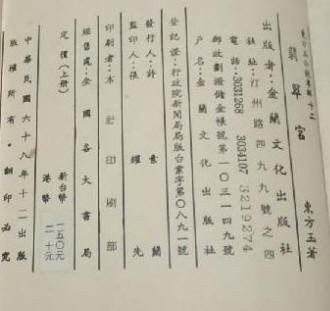 東方玉著
翡翠宮
出版者：金蘭文化出版社
社址：汀州路四九九號之四
電話：3031268 3034107 3219274
郵政劃撥儲金帳號第一〇三一四九號
戶名：金蘭文化出版社
登記證：行政院新聞局局版台業字第〇八九一號
發行人：許素蘭
監印人：張耀先
印刷者：本社印刷部
經售處：全國各大書局
定價（上册）新台幣一五〇元
港幣二十元
中華民國六十八年十二出版
版權所有・翻印必究